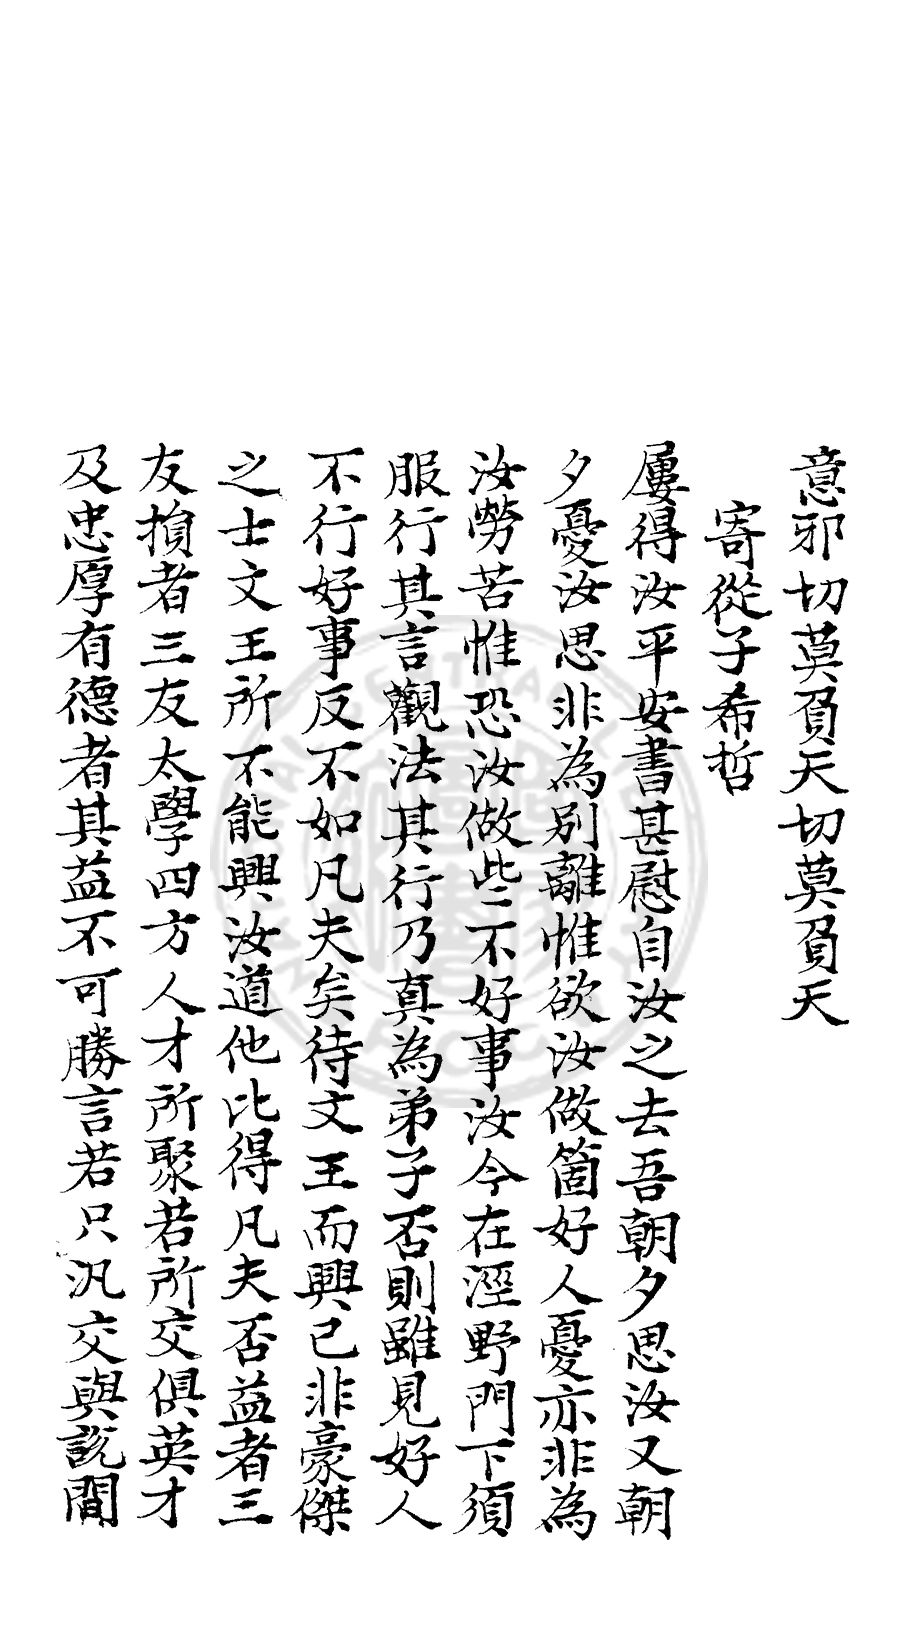 意邪切莫負天切莫負天
寄從子希哲
屢得汝平安書甚慰自汝之去吾朝夕思汝又朝
夕憂汝思非為別離惟欲汝做箇好人憂亦非為
汝勞苦惟恐汝做些不好事汝今在涇野門下須
服行其言觀法其行乃真為弟子否則雖見好人
不行好事反不如凡夫矣待文王而興已非豪傑
之士文王所不能興汝道他比得凡夫否益者三
友損者三友太學四方人才所聚若所交俱英才
及忠厚有德者其益不可勝言若只汎交與說閒